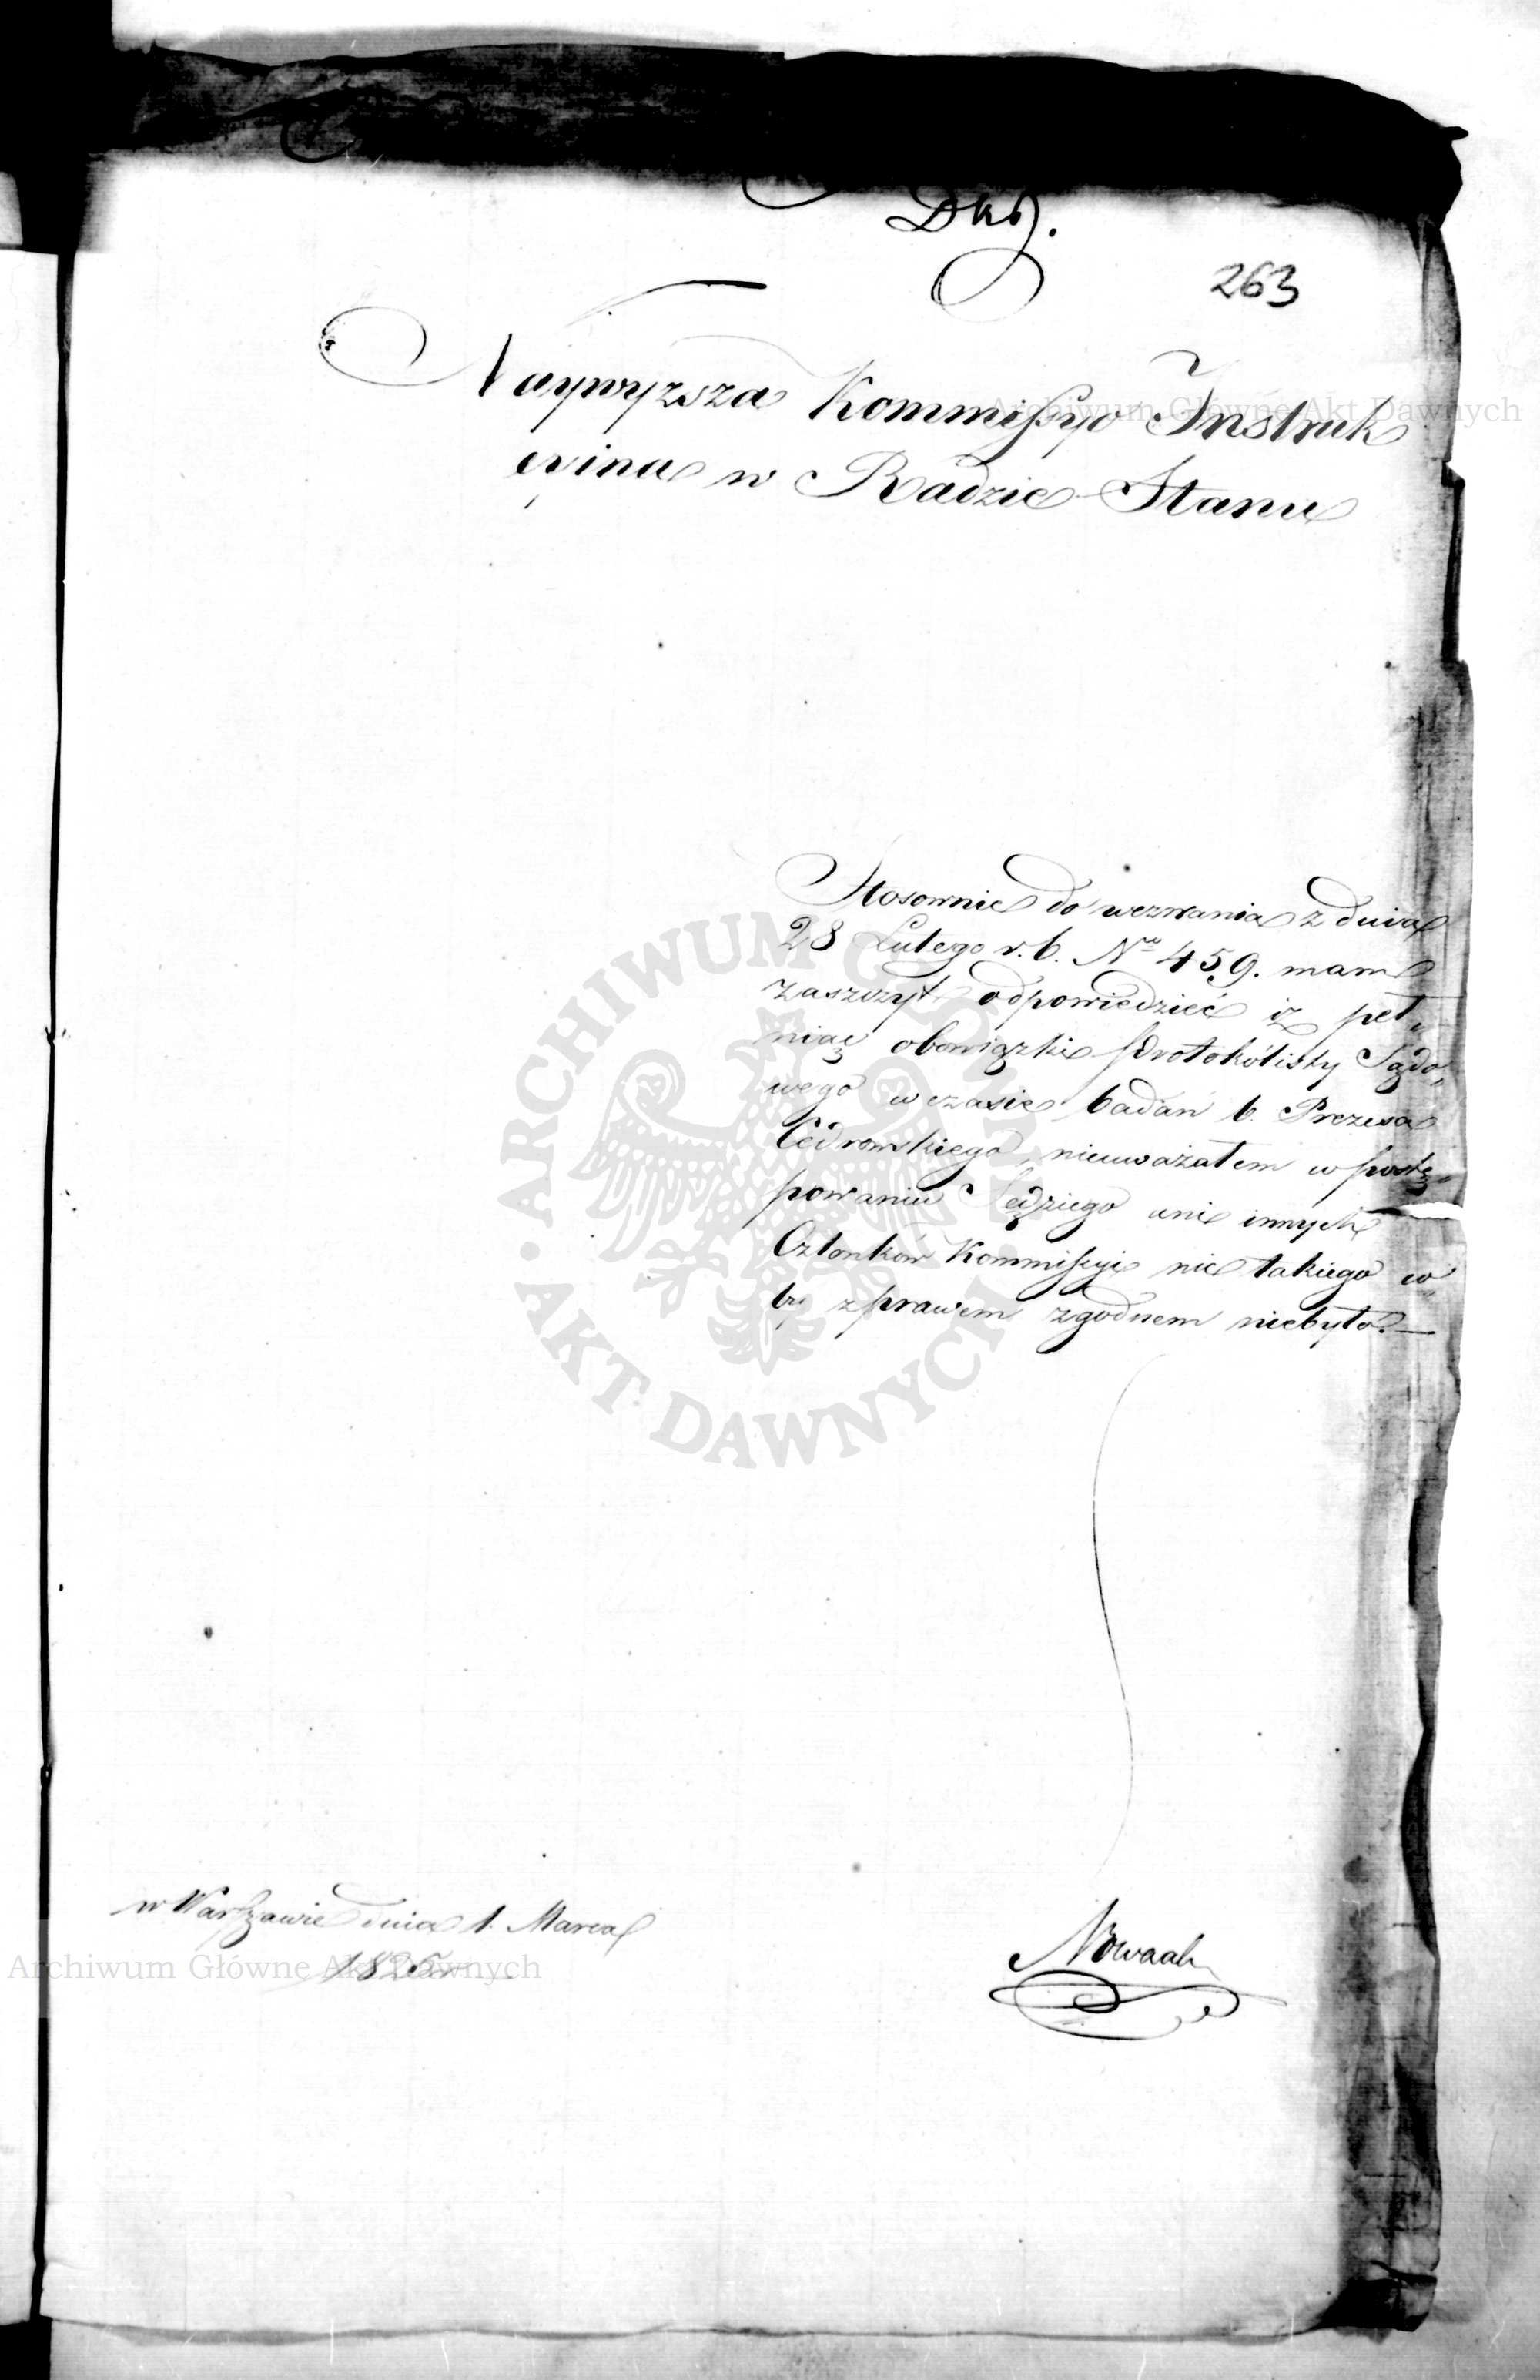 263
Naywyższa Kommissyo Instruk
cyina w Radzie Stanu
Archiwum Główne Akt Dawnych
Stosownie do wezwania z dnia
28 Lutego r. b. Nro 459. mam
zaszczyt odpowiedzieć iż peł„
niąc obowiązki Protokólisty Sądo„
wego w czasie badań b. Prezesa
Cedrowskiego, nieuważałem w postę„
powaniu Sędziego ani innych
Członków Kommissyi nic takiego co
by z prawem zgodnem niebyło.—
ARCHIWUM GŁÓWNE • AKT DAWNYCH •
w Warszawie dnia 1. Marca
Archiwum Główne Akt Dawnych
Nowack